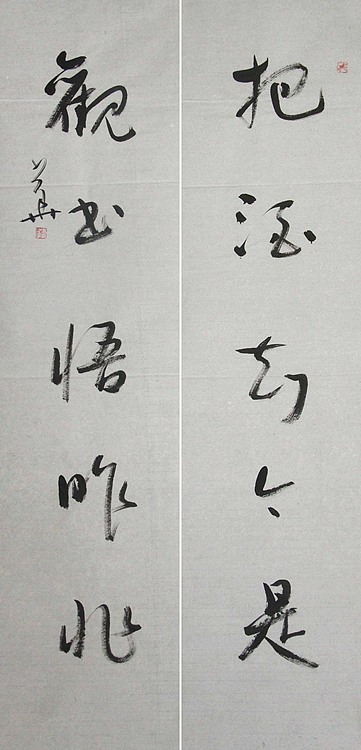 把酒知今是
觀书悟昨非